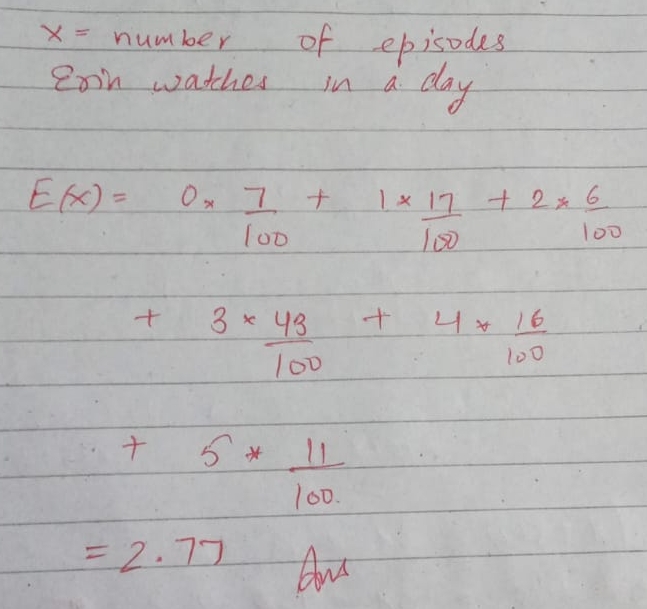 x = number of episodes
Erin watches in a day
E(x) = 0 * 7/100 + 1 * 17/100 + 2 * 6/100
+ 3 * 43/100 + 4 * 16/100
+ 5 * 11/100.
= 2.77 Ans